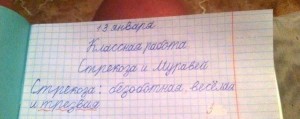 13 января
Классная работа
Стрекоза и Муравей
Стрекоза: беззаботная, весёлая
и трезвая